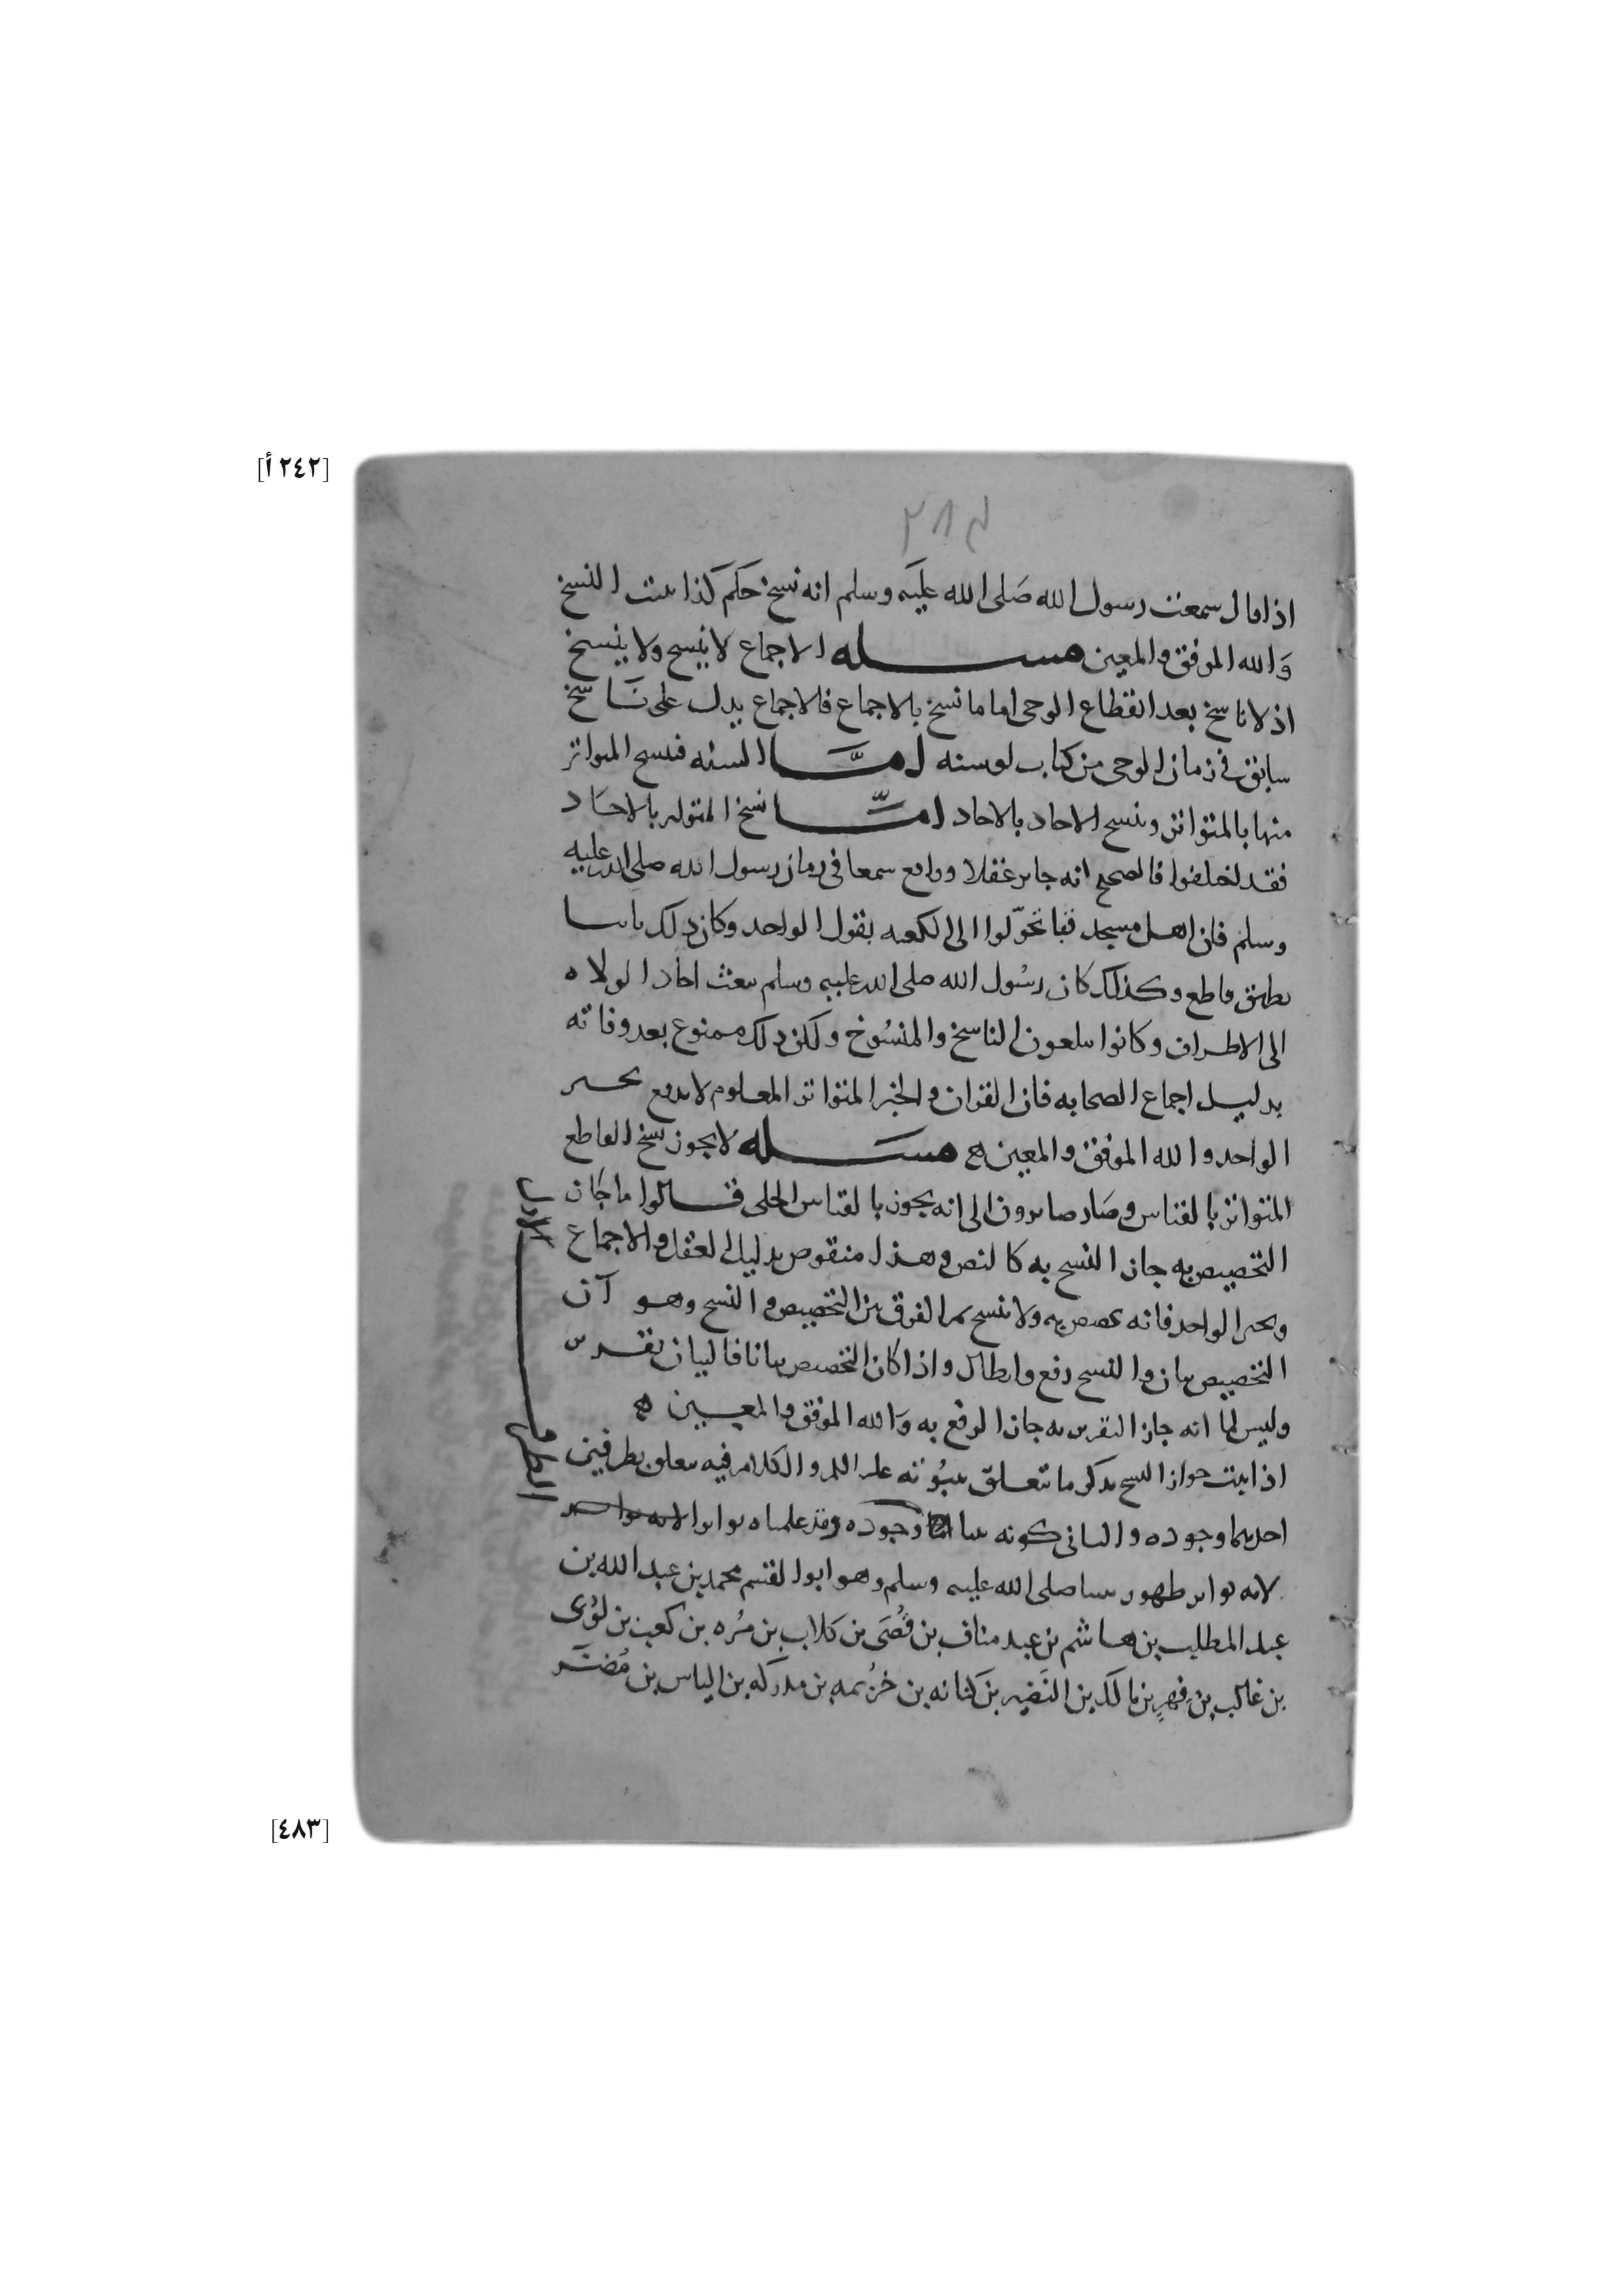 [٢٤٢ أ]
اذا قال سمعت رسول الله صلى الله عليه وسلم انه نسخ حكم كذا ثبت النسخ
والله الموفق والمعين مسله الاجماع لا ينسخ ولا ينسخ
اذ لا ناسخ بعد انقطاع الوحى اما ما نسخ بالاجماع فالاجماع يدل على ناسخ
سابق فى زمان الوحى من كتاب او سنه امّا السنه فنسخ المتواتر
منها بالمتواتر ونسخ الاحاد بالاحاد امّا نسخ المتواتر بالاحاد
فقد اختلفوا فالصحيح انه جايز عقلا وواقع سمعا فى زمان رسول الله صلى الله عليه
وسلم فان اهل مسجد قبا تحوّلوا الى الكعبه بقول الواحد وكان ذلك ثابتا
بطريق قاطع وكذلك كان رسول الله صلى الله عليه وسلم يبعث احاد الولاه
الى الاطراف وكانوا يبلغون الناسخ والمنسوخ ولكن ذلك ممنوع بعد وفاته
بدليل اجماع الصحابه فان القران والخبر المتواتر المعلوم لا يدفع بخبر
الواحد والله الموفق والمعين مسله لا يجوز نسخ القاطع
المتواتر بالقياس وصار صايرون الى انه يجوز بالقياس الجلى قالوا ما جان
التخصيص به جاز النسخ به كالنص وهذا منقوض بدليل العقل والاجماع
وبخبر الواحد فانه يخصص به ولا ينسخ ثم الفرق بين التخصيص والنسخ وهو ان
التخصيص بيان والنسخ رفع وابطال واذا كان التخصيص بيانا فالبيان تقرير
وليس لما انه جاز التقرير به جاز الرفع به والله الموفق والمعين
اذا ثبت جواز النسخ نذكر ما تتعلق بنبوّته عليه السلم والكلام فيه يتعلق بطرفين
احدهما وجوده والثانى كونه نبيا اما وجوده وقد علمناه تواترا
لانه تواتر ظهور نبينا صلى الله عليه وسلم وهو ابو القسم محمد بن عبد الله بن
عبد المطلب بن هاشم بن عبد مناف بن قُصَى بن كلاب بن مُره بن كعب بن لؤى
بن غالب بن فهر بن مالك بن النضير بن كنانه بن خزيمه بن مدركه بن الياس بن مُضر
[٤٨٣]